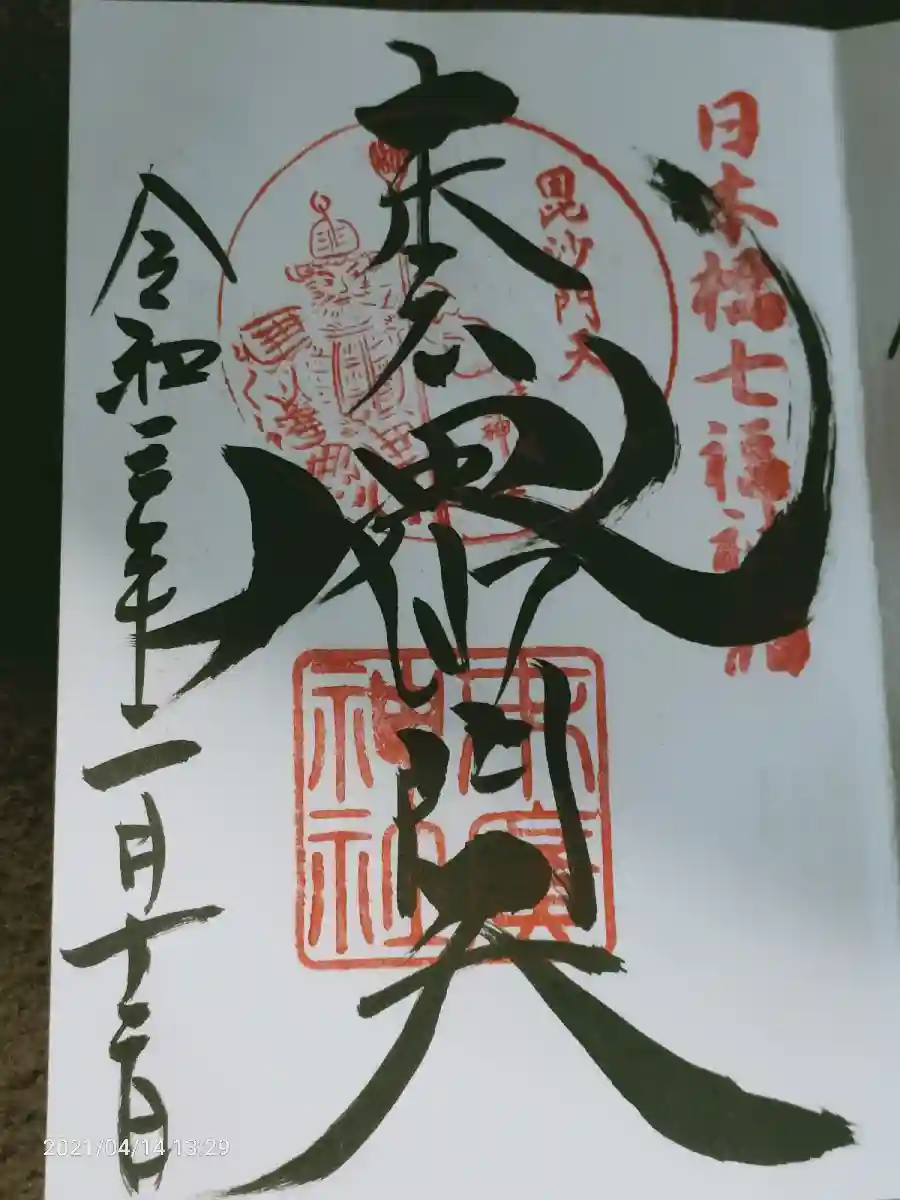 日本橋七福神詣
毘沙門天
末広
毘沙門天
末廣
神社
令和三年一月十二日
2021/04/14 13:29